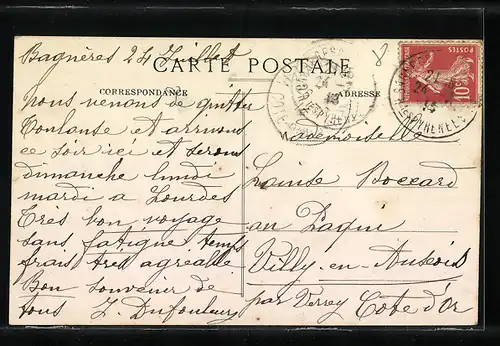 Bagnères 24 Juillet
CARTE POSTALE
CORRESPONDANCE
ADRESSE
nous venons de quitter
Toulouse et arrivons
ce soir ici et serons
dimanche lundi
mardi a Lourdes
Très bon voyage
sans fatigue temps
frais très agréable
Bon souvenir de
tous J. Dufouleur
Mademoiselle
Louise Boccard
au Paquis
Villy-en-Auxois
par Verrey Côte d'Or
POSTES
10